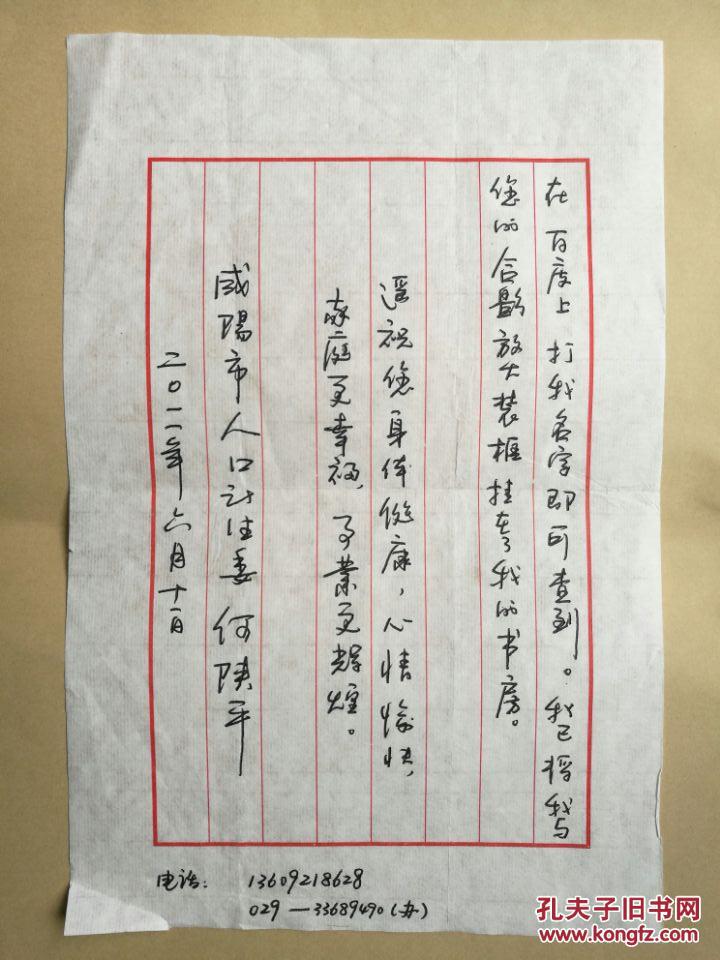 在百度上打我名字即可查到。我已将我与
您的合影放大装框挂在了我的书房。
遥祝您身体健康，心情愉快，
家庭更幸福，事业更辉煌。
咸陽市人口计生委 何陕平
二〇一一年六月十一日
电话： 13609218628
029—33689490（办）
孔夫子旧书网
www.kongfz.com